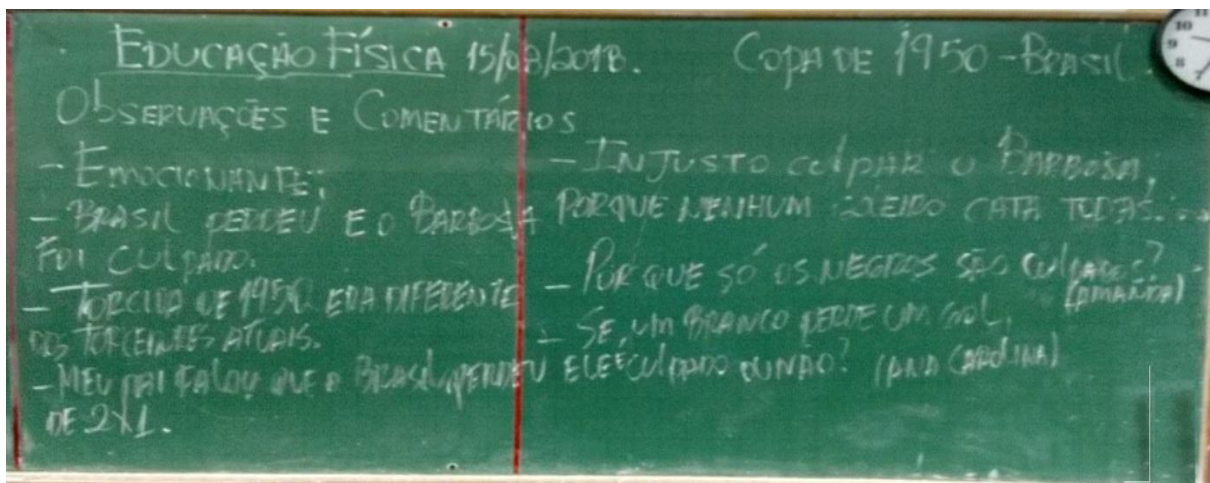 EDUCAÇÃO FÍSICA 15/08/2018. COPA DE 1950 - BRASIL.
OBSERVAÇÕES E COMENTÁRIOS
- EMOCIONANTE;
- BRASIL PERDEU E O BARBOSA
FOI CULPADO.
- TORCIDA DE 1950 ERA DIFERENTE
DOS TORCEDORES ATUAIS.
- MEU PAI FALOU QUE O BRASIL PERDEU
DE 2X1.
- INJUSTO CULPAR O BARBOSA,
PORQUE NENHUM GOLEIRO CATA TODAS...
- POR QUE SÓ OS NEGROS SÃO CULPADOS?
(AMANDA)
- SE UM BRANCO PERDE UM GOL,
ELE É CULPADO OU NÃO? (ANA CAROLINA)
10
9
8
7